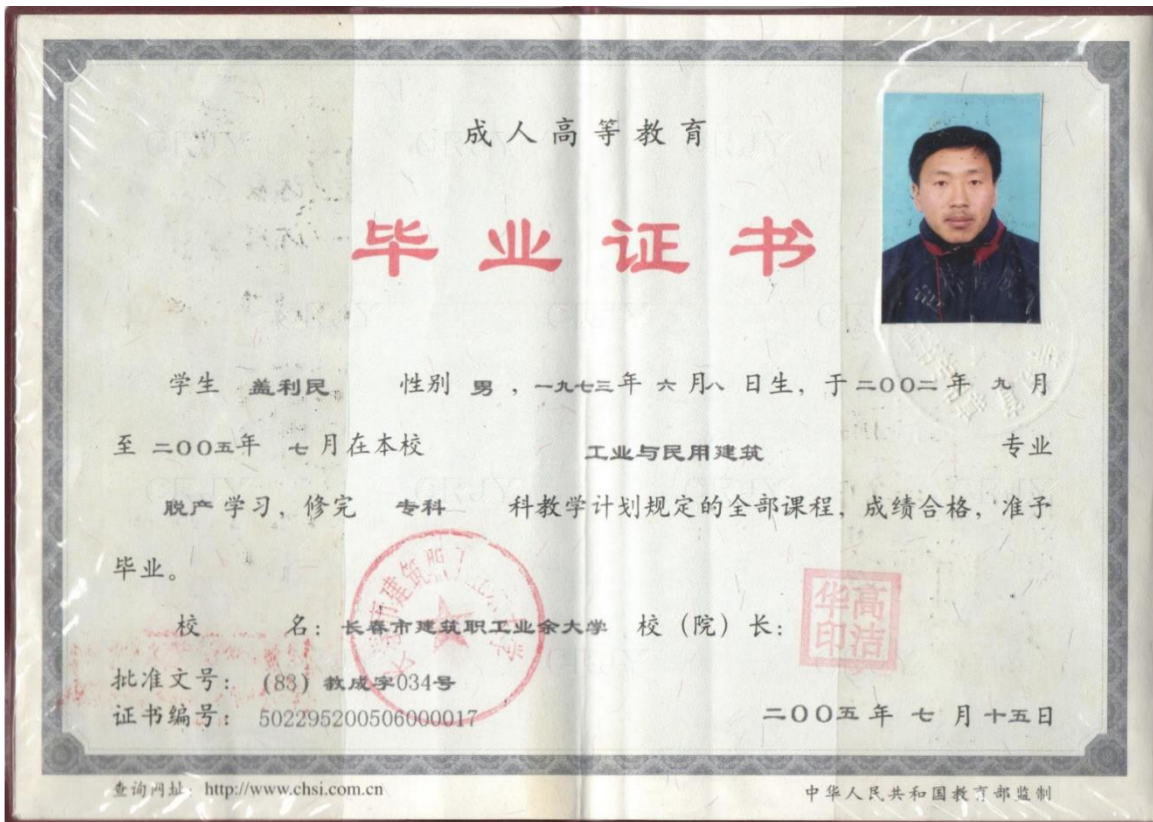 成人高等教育
毕业证书
学生 盖利民 性别 男 , 一九七三年 六 月八 日生, 于二〇〇二年 九 月
至 二〇〇五年 七月在本校 工业与民用建筑 专业
脱产 学习, 修完 专科 科教学计划规定的全部课程, 成绩合格, 准予
毕业。
校 名: 长春市建筑职工业余大学 校 (院) 长:
高洁华印
批准文号: (83) 教成字034号
证书编号: 502295200506000017
二〇〇五年 七 月十五日
查询网址: http://www.chsi.com.cn
中华人民共和国教育部监制